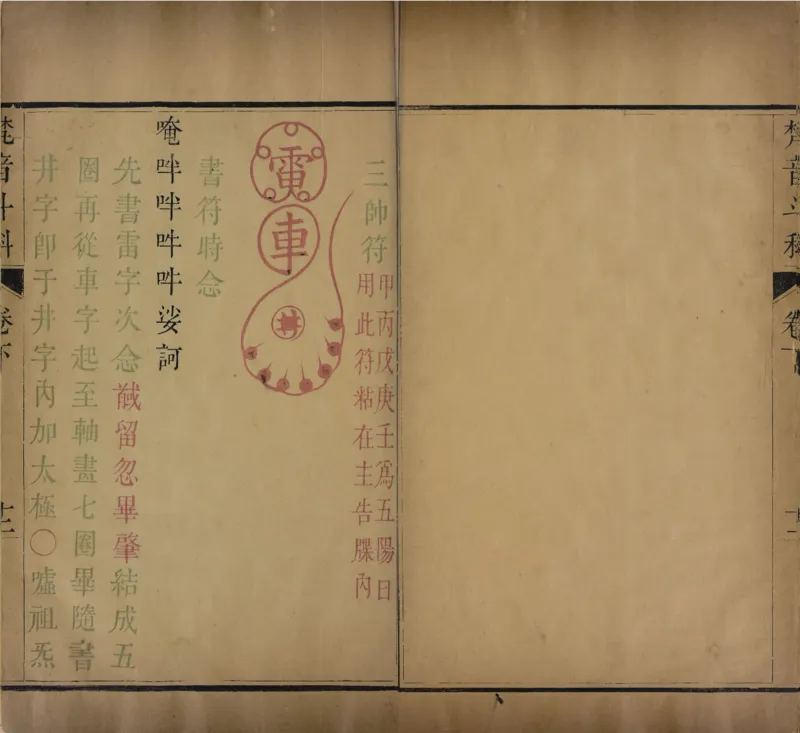 梵音斗科
卷下
十二
三帥符
甲丙戊庚壬爲五陽日
用此符粘在主告牒內
雷
車
井
書符時念
唵吽吽吽吽娑訶
先書雷字次念馘留忽畢肇結成五
圈再從車字起至軸畫七圈畢隨書
井字即于井字內加太極〇噓祖炁
梵音斗科
卷下
十二